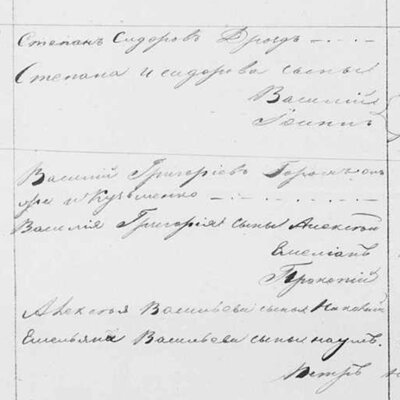 Степанъ Сидоровъ Дроздъ
Степана Исидорова сыны
Василій
Іосипъ
Василій Григоріевъ
же и Кузьменко
Василія Григорія сыны Алексѣй
Емеліанъ
Прокопій
Алексѣя Васильева сынъ
Емельяна Васильева сыны Наумъ
Петръ